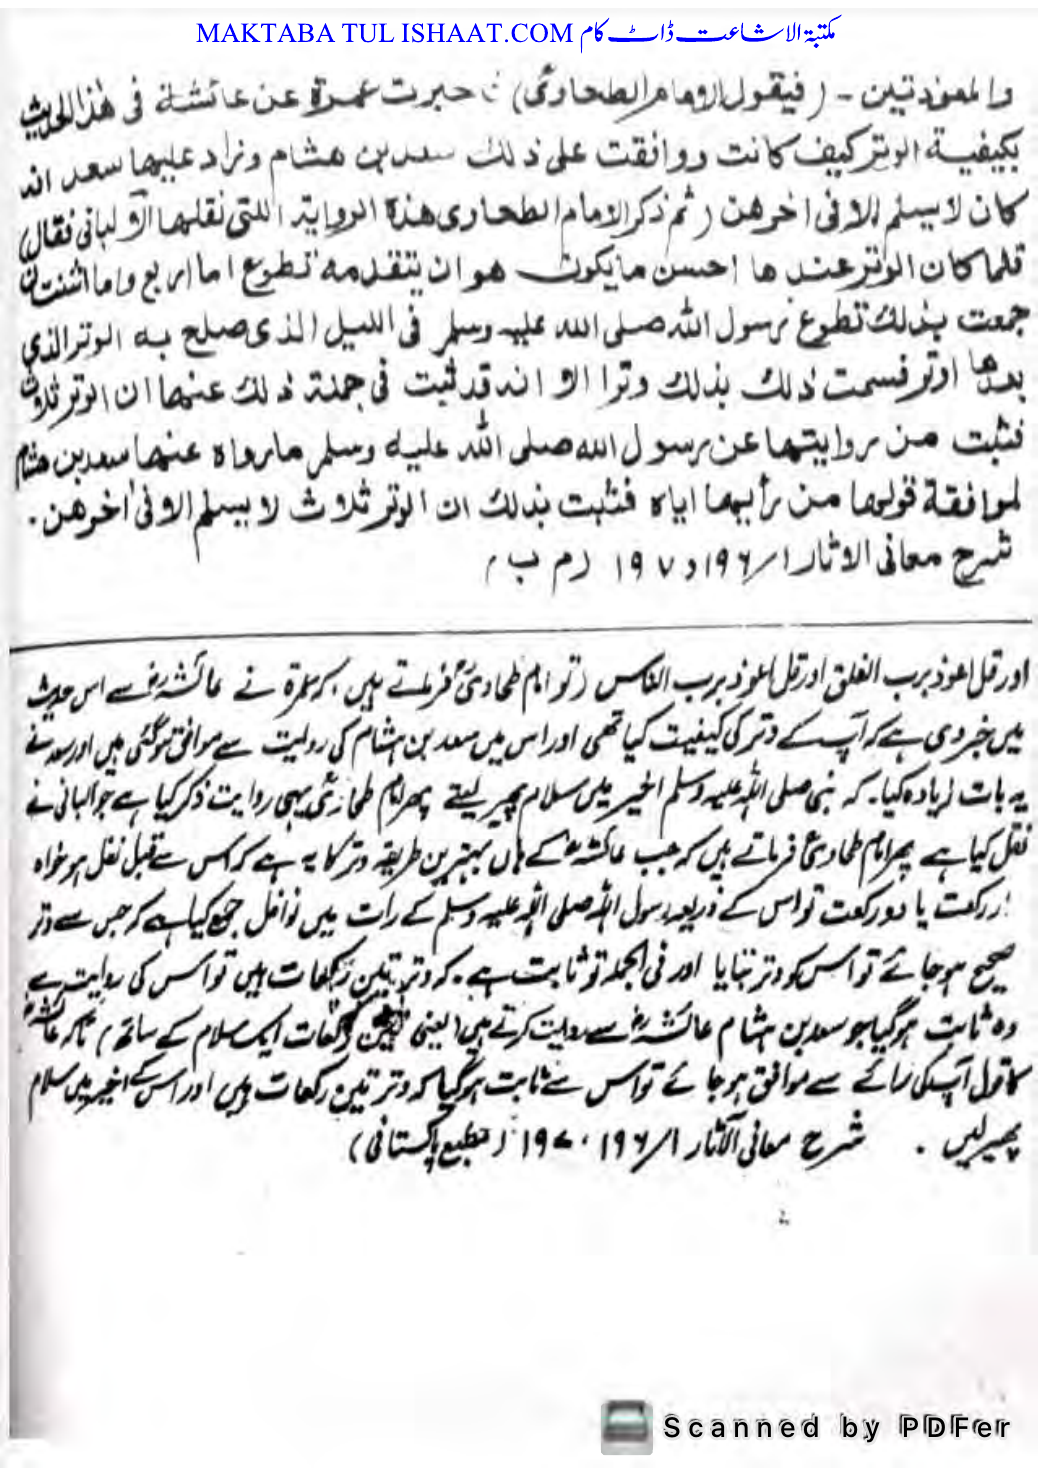 MAKTABA TUL ISHAAT.COM مکتبۃ الاشاعت ڈاٹ کام
والمعوذتین - (فیقول الامام الطحاویؒ) حبرت عمرة عن عائشة فی هٰذا الحدیث
بکیفیة الوتر کیف کانت ووافقت علی ذلك سعد بن هشام وزاد علیها سعد انه
کان لا یسلم الا فی اخرهن (ثم ذکر الامام الطحاوی هذه الروایة اللتی نقلها الالبانی فقال)
فلما کان الوتر عندها احسن ما یکون هو ان یتقدمه تطوع اما اربع واما اثنتان
جمعت بذلك تطوع رسول الله صلی الله علیه وسلم فی اللیل الذی صلح به الوتر الذی
بعدها اوتر فسمت ذلك بذلك وترا الا انه قد ثبت فی جملة ذلك عنها ان الوتر ثلاث
فثبت من روایتها عن رسول الله صلی الله علیه وسلم ما رواه عنها سعد بن هشام
لموافقة قولها من رأیها ایاه فثبت بذلك ان الوتر ثلاث لا یسلم الا فی اخرهن.
شرح معانی الاثار ۱/۱۹۶ و ۱۹۷ (م ب)
اور قل اعوذ برب الفلق اور قل اعوذ برب الناس (تو امام طحاویؒ فرماتے ہیں، کہ عمرة نے عائشہؓ سے اس حدیث
میں خبر دی ہے کہ آپ کے وتر کی کیفیت کیا تھی اور اس میں سعد بن ہشام کی روایت سے موافق ہوگئی ہیں اور سعد نے
یہ بات زیادہ کیا۔ کہ نبی صلی اللہ علیہ وسلم اخیر میں سلام پھیر لیتے پھر امام طحاویؒ یہی روایت ذکر کیا ہے جو البانی نے
نقل کیا ہے پھر امام طحاویؒ فرماتے ہیں کہ جب عائشہؓ کے ہاں بہترین طریقہ وتر کا یہ ہے کہ اس سے قبل نفل ہو خواہ
رکعت یا دو رکعت تو اس کے ذریعہ رسول اللہ صلی اللہ علیہ وسلم کے رات میں نوافل جمع کیا ہے کہ جس سے وتر
صحیح ہو جائے تو اس کو وتر بتایا اور فی الجملہ تو ثابت ہے۔ کہ وتر تین رکعات ہیں تو اس کی روایت سے
وہ ثابت ہوگیا جو سعد بن ہشام عائشہؓ سے روایت کرتے ہیں (یعنی تین رکعات ایک سلام کے ساتھ) تاکہ عائشہؓ
کا قول آپ کی رائے سے موافق ہو جائے تو اس سے ثابت ہوگیا کہ وتر تین رکعات ہیں اور اس کے اخیر میں سلام
پھیر لیں. شرح معانی الآثار ۱/۱۹۶، ۱۹۷ (مطبع پاکستانی)
Scanned by PDFer